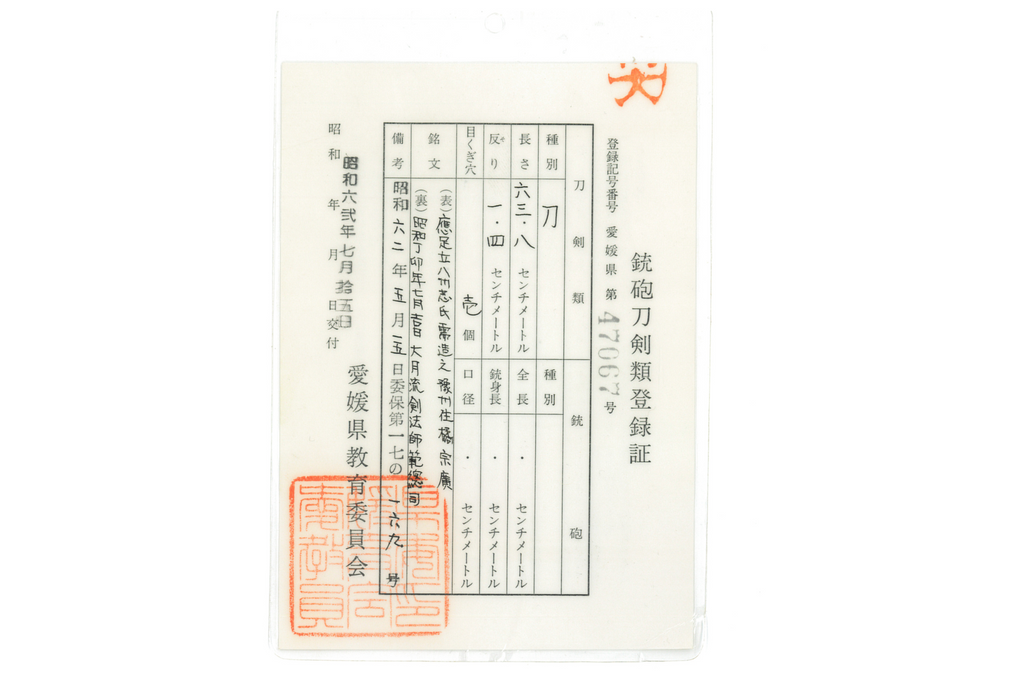 銃砲刀剣類登録証
登録記号番号 愛媛県 第 47067 号
刀剣類 銃砲
種別 刀 種別
長さ 六三・八 センチメートル 全長 ・ センチメートル
反り 一・四 センチメートル 銃身長 ・ センチメートル
目くぎ穴 壱 個 口径 ・ センチメートル
銘文 (表) 應足立八州志氏需造之 豫州住橘宗廣
(裏) 昭和丁卯年七月吉日 大月流剣法師範總司
備考 昭和六二年五月一五日委保第一七の一六九号
昭和 年 月 日交付
昭和六弐年七月拾五日
愛媛県教育委員会